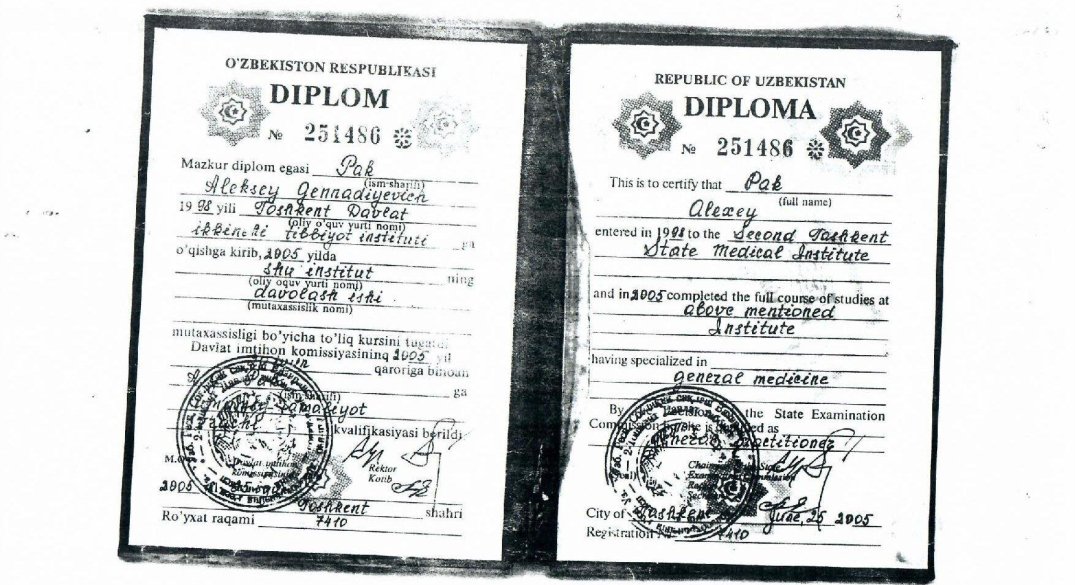 O'ZBEKISTON RESPUBLIKASI
DIPLOM
№ 251486
Mazkur diplom egasi Pak
(ism-sharifi)
Aleksey Gennadiyevich
1998 yili Toshkent Davlat
(oliy o'quv yurti nomi)
ikkinchi tibbiyot instituti ga
o'qishga kirib, 2005 yilda
shu institut ning
(oliy oquv yurti nomi)
davolash ishi
(mutaxassislik nomi)
mutaxassisligi bo'yicha to'liq kursini tugatdi
Davlat imtihon komissiyasining 2005 yil
qaroriga binoan
ga
(ism-sharifi)
kvalifikasiyasi berildi
Davlat imtihon
komissiyasining
Rektor
Kotib
M.O
2005
Toshkent shahri
Ro'yxat raqami 7410
REPUBLIC OF UZBEKISTAN
DIPLOMA
№ 251486
This is to certify that Pak
(full name)
Alexey
entered in 1998 to the Second Tashkent
State Medical Institute
and in 2005 completed the full course of studies at
above mentioned
Institute
having specialized in
general medicine
By Decision the State Examination
Commission he/she is qualified as
General Practitioner
City of Tashkent June, 25 2005
Registration № 7410